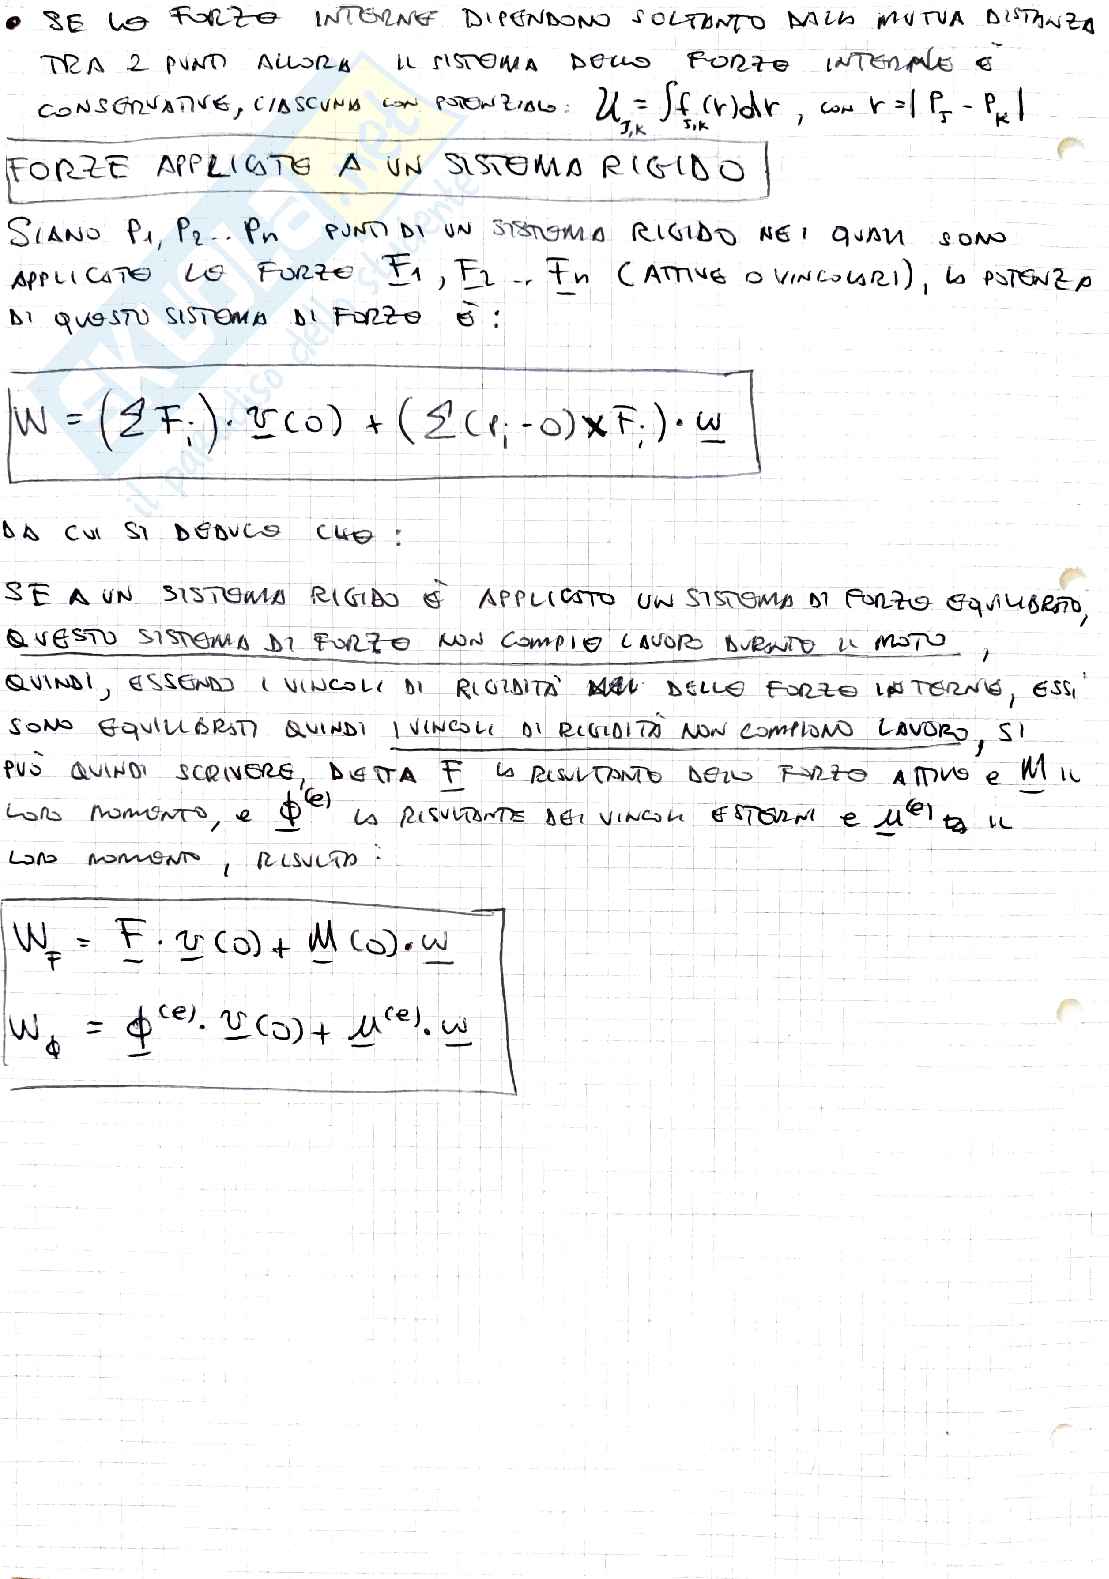 • SE LE FORZE INTERNE DIPENDONO SOLTANTO DALLA MUTUA DISTANZA
TRA 2 PUNTI ALLORA IL SISTEMA DELLE FORZE INTERNE È
CONSERVATIVE, CIASCUNA CON POTENZIALE: U_{J,K} = ∫f_{J,K}(r)dr, CON r = |P_J - P_K|
FORZE APPLICATE A UN SISTEMA RIGIDO
SIANO P1, P2.. Pn PUNTI DI UN SISTEMA RIGIDO NEI QUALI SONO
APPLICATE LE FORZE F1, F2 .. Fn (ATTIVE O VINCOLARI), LA POTENZA
DI QUESTO SISTEMA DI FORZE È:
W = (ΣF_i)·v(O) + (Σ(P_i-O)×F_i)·w
DA CUI SI DEDUCE CHE:
SE A UN SISTEMA RIGIDO È APPLICATO UN SISTEMA DI FORZE EQUILIBRATO,
QUESTO SISTEMA DI FORZE NON COMPIE LAVORO DURANTE IL MOTO,
QUINDI, ESSENDO I VINCOLI DI RIGIDITÀ DELLE FORZE INTERNE, ESSI
SONO EQUILIBRATI QUINDI I VINCOLI DI RIGIDITÀ NON COMPIONO LAVORO, SI
PUÒ QUINDI SCRIVERE, DETTA F LA RISULTANTE DELLE FORZE ATTIVE E M IL
LORO MOMENTO, E ϕ^(e) LA RISULTANTE DEI VINCOLI ESTERNI E μ^(e) IL
LORO MOMENTO, RISULTA:
W_F = F·v(O) + M(O)·w
W_ϕ = ϕ^(e)·v(O) + μ^(e)·w
SKUOLA.net
il paradiso dello studente